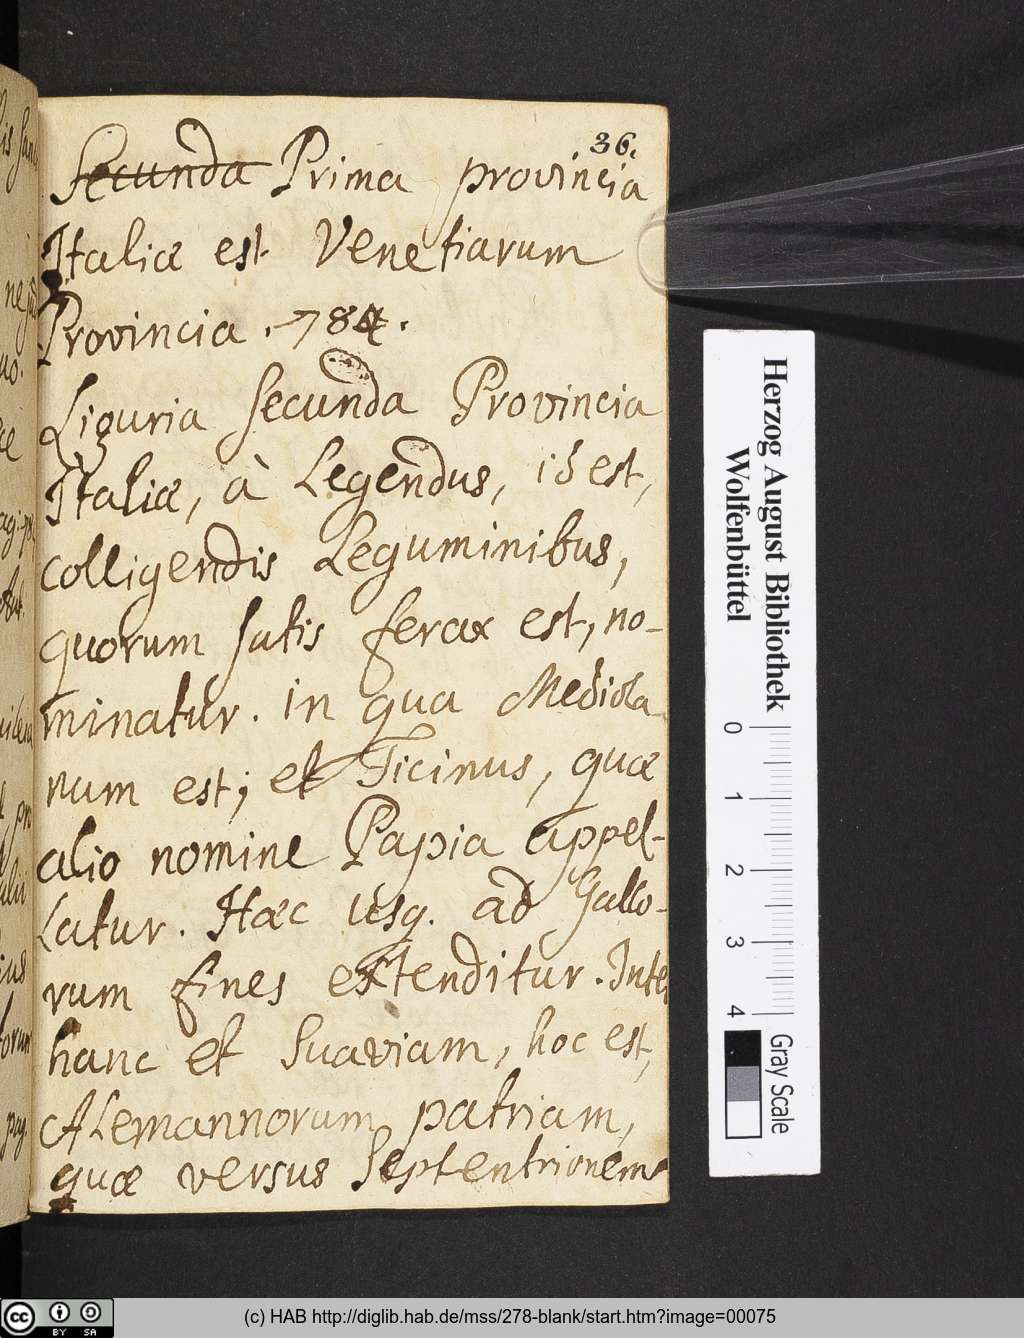 36.
Secunda Prima provincia
Italiæ est Venetiarum
Provincia . 784.
Liguria secunda Provincia
Italiæ, à Legendus, id est,
colligendis Leguminibus,
quorum satis ferax est, no-
minatur. in qua Mediola-
num est; et Ticinus, quæ
alio nomine Papia appel-
Latur. Hæc usq. ad Gallo-
rum fines extenditur. Inter
hanc et Suaviam, hoc est,
Alemannorum patriam,
quæ versus Septentrionem
Herzog August Bibliothek
Wolfenbüttel
0 1 2 3 4
Gray Scale
cc BY SA
(c) HAB http://diglib.hab.de/mss/278-blank/start.htm?image=00075